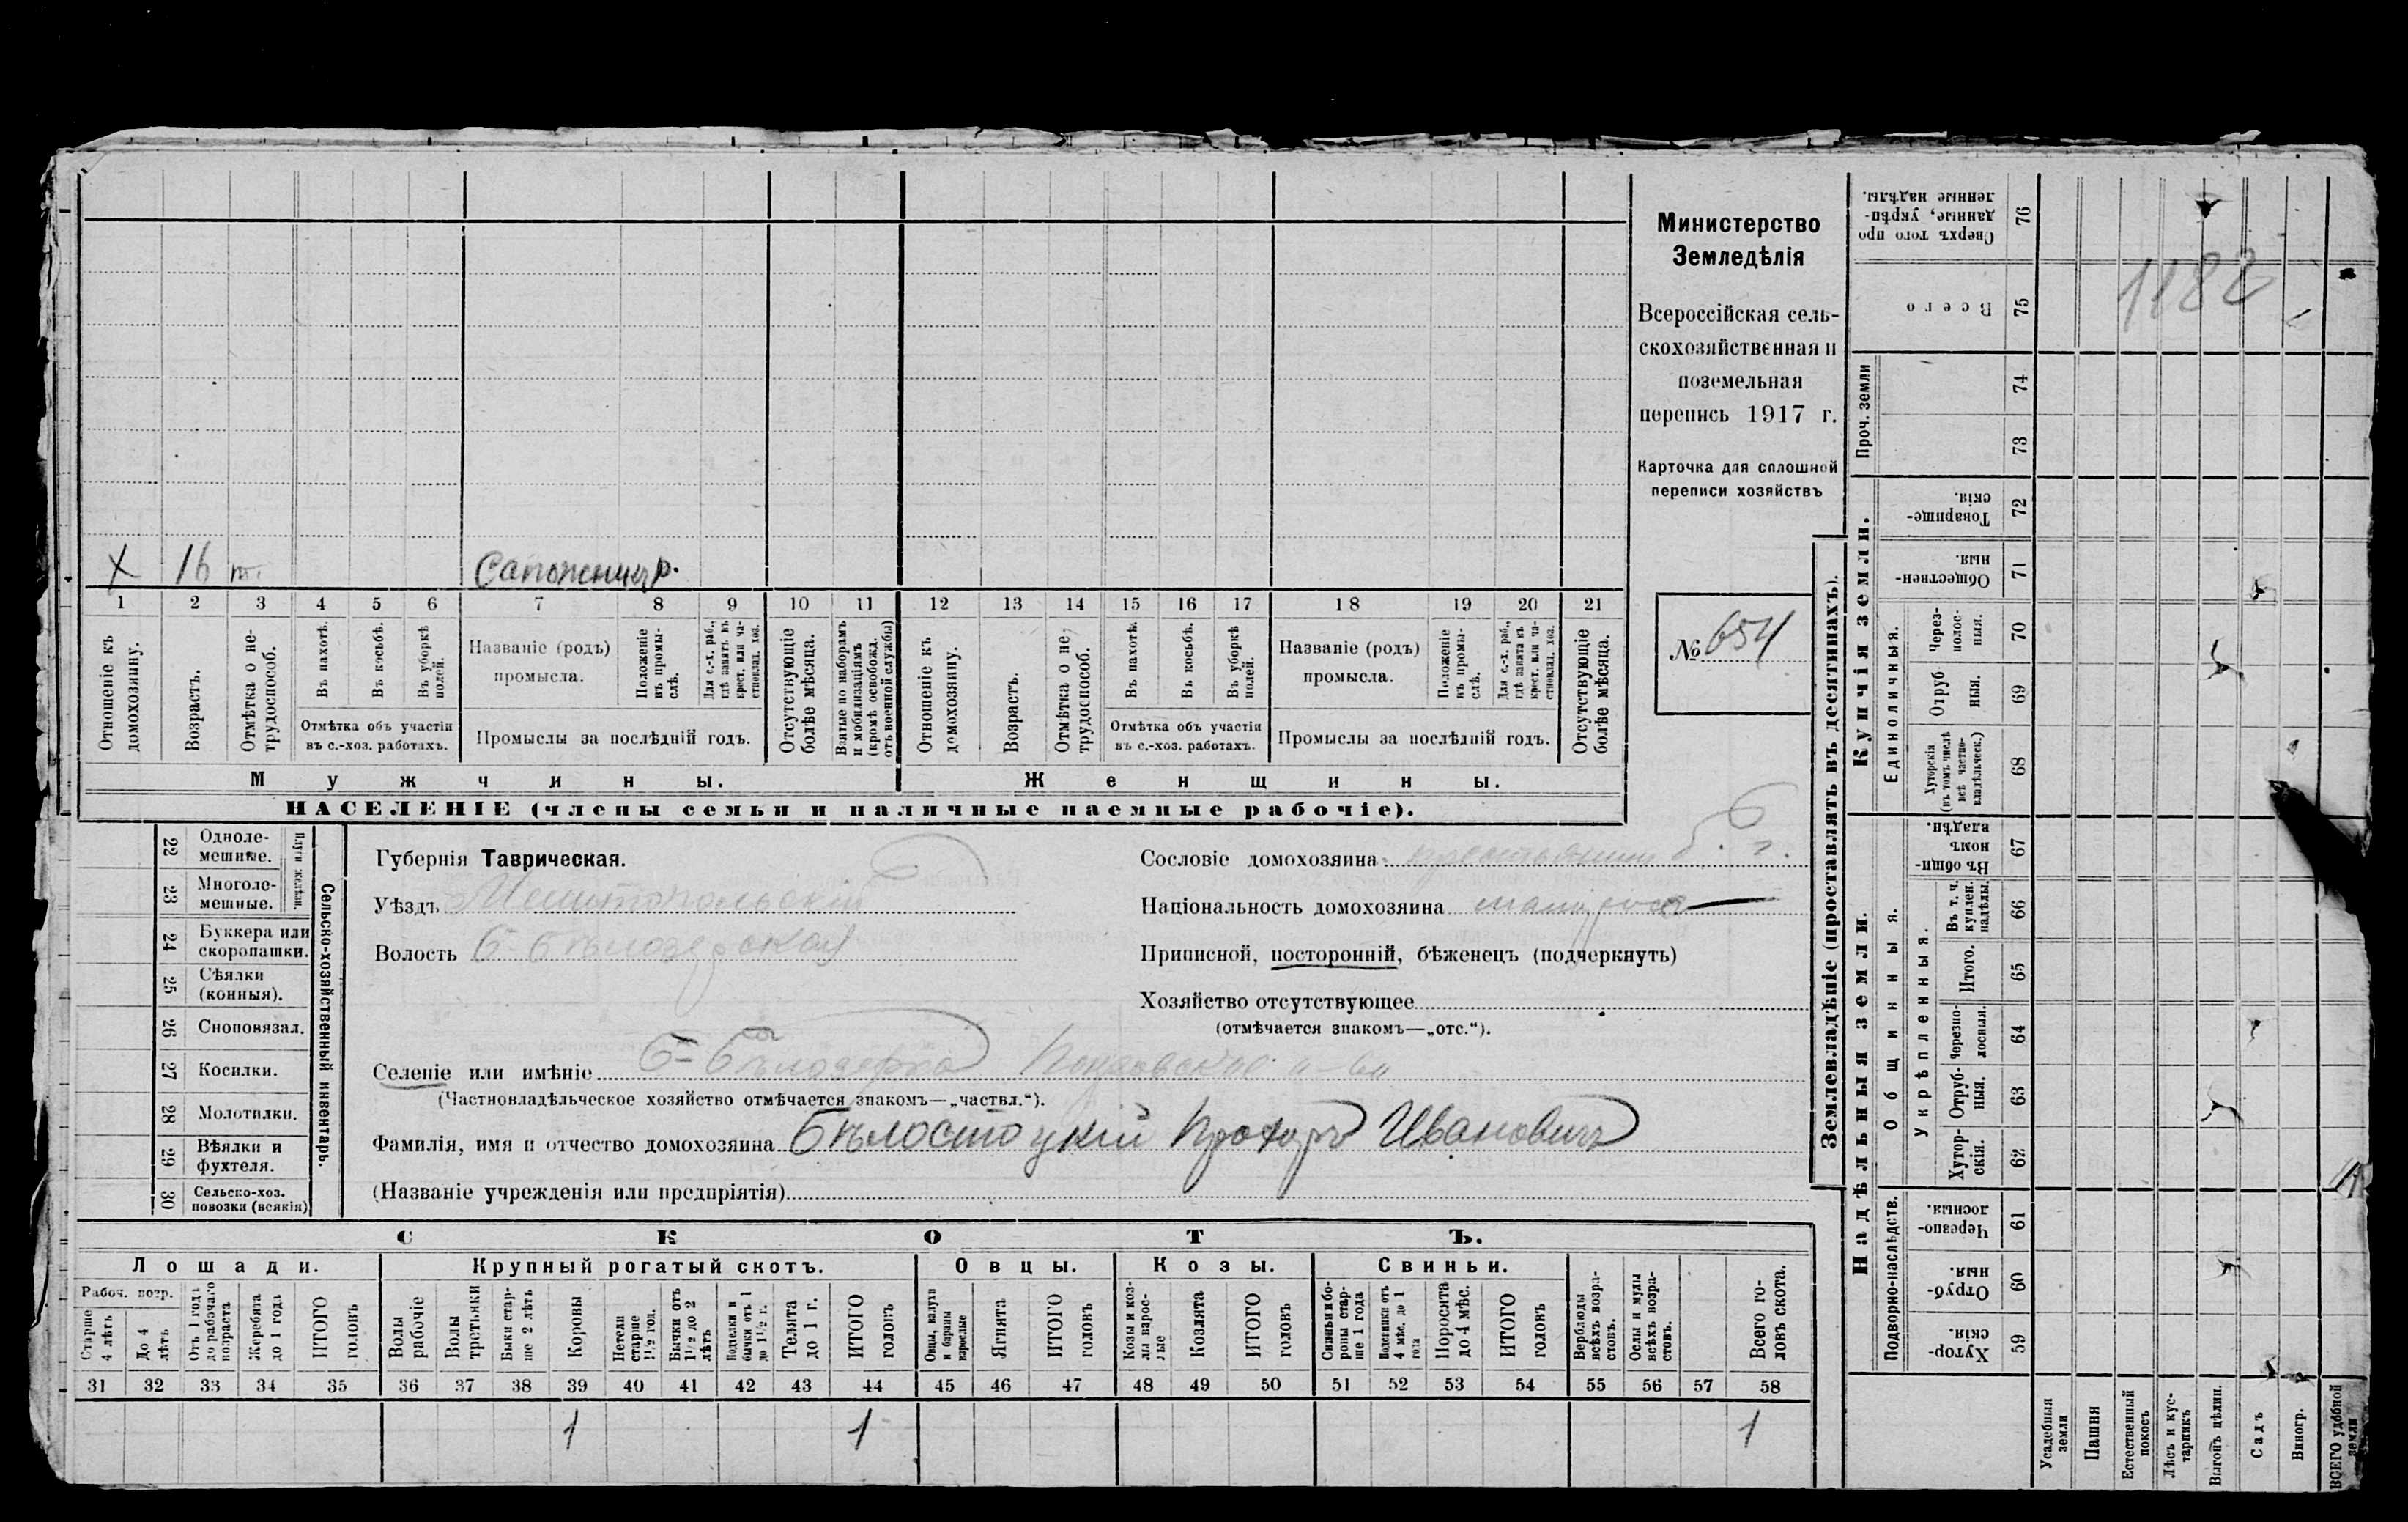 X 16 т.
Сапожникъ р.
1 2 3 4 5 6 7 8 9 10 11 12 13 14 15 16 17 18 19 20 21
Отношеніе къ домохозяину.
Возрастъ.
Отмѣтка о нетрудоспособ.
Въ пахотѣ.
Въ косьбѣ.
Въ уборкѣ полей.
Отмѣтка объ участіи
въ с.-хоз. работахъ.
Названіе (родъ)
промысла.
Положеніе въ промыслѣ.
Для с.-х. раб., гдѣ занятъ въ крест. или частновлад. хоз.
Промыслы за послѣдній годъ.
Отсутствующіе болѣе мѣсяца.
Взятые по наборамъ и мобилизаціямъ (кромѣ освобожд. отъ военной службы)
Отношеніе къ домохозяину.
Возрастъ.
Отмѣтка о нетрудоспособ.
Въ пахотѣ.
Въ косьбѣ.
Въ уборкѣ полей.
Отмѣтка объ участіи
въ с.-хоз. работахъ.
Названіе (родъ)
промысла.
Положеніе въ промыслѣ.
Для с.-х. раб., гдѣ занята въ крест. или частновлад. хоз.
Промыслы за послѣдній годъ.
Отсутствующіе болѣе мѣсяца.
Мужчины.
Женщины.
НАСЕЛЕНІЕ (члены семьи и наличные наемные рабочіе).
Министерство
Земледѣлія
Всероссійская сель-
скохозяйственная и
поземельная
перепись 1917 г.
Карточка для сплошной
переписи хозяйствъ
№ 654
22 Одноле-
мешные.
23 Многоле-
мешные.
Плуги желѣзн.
24 Буккера или
скоропашки.
25 Сѣялки
(конныя).
26 Сноповязал.
27 Косилки.
28 Молотилки.
29 Вѣялки и
фухтеля.
30 Сельско-хоз.
повозки (всякія)
Сельско-хозяйственный инвентарь.
Губернія Таврическая.
Уѣздъ Мелитопольскій
Волость Б-Бѣлозерская
Сословіе домохозяина
Національность домохозяина малороссъ
Приписной, посторонній, бѣженецъ (подчеркнуть)
Хозяйство отсутствующее
(отмѣчается знакомъ—„отс.“).
Селеніе или имѣніе Б-Бѣлозерка
(Частновладѣльческое хозяйство отмѣчается знакомъ—„частвл.“).
Фамилія, имя и отчество домохозяина Бѣлостоцкій Прохоръ Ивановичъ
(Названіе учрежденія или предпріятія)
СКОТЪ.
Лошади. Крупный рогатый скотъ. Овцы. Козы. Свиньи.
Рабоч. возр.
Старше 4 лѣтъ
До 4 лѣтъ
Отъ 1 года до рабочаго возраста
Жеребята до 1 года
ИТОГО головъ
Волы рабочіе
Волы третьяки
Быки старше 2 лѣтъ
Коровы
Нетели старше 1½ год.
Бычки отъ 1½ до 2 лѣтъ
Подтелки и бычки отъ 1 до 1½ г.
Телята до 1 г.
ИТОГО головъ
Овцы, валухи и бараны взрослые
Ягнята
ИТОГО головъ
Козы и козлы взрослые
Козлята
ИТОГО головъ
Свиньи и боровы старше 1 года
Подсвинки отъ 4 мѣс. до 1 года
Поросята до 4 мѣс.
ИТОГО головъ
Верблюды всѣхъ возрастовъ.
Ослы и мулы всѣхъ возрастовъ.
Всего головъ скота.
31 32 33 34 35 36 37 38 39 40 41 42 43 44 45 46 47 48 49 50 51 52 53 54 55 56 57 58
1 1 1
Землевладѣніе (проставлять въ десятинахъ).
Сверхъ того проданные, укрѣпленные надѣлы. 76
Всего 75
Проч. земли
74
73
Купчія земли.
Товарищескія. 72
Общественныя. 71
Единоличныя.
Черезполосныя. 70
Отрубныя. 69
Хуторскія (въ томъ числѣ всѣ частновладѣльческ.) 68
Надѣльныя земли.
Общинныя.
Въ общинномъ владѣн. 67
Укрѣпленныя.
Въ т. ч. куплен. надѣлы. 66
Итого. 65
Черезполосныя. 64
Отрубныя. 63
Хуторскія. 62
Подворно-наслѣдств.
Черезполосныя. 61
Отрубныя. 60
Хуторскія. 59
1182
Усадебныя земли
Пашня
Естественный покосъ
Лѣсъ и кустарникъ
Выгонъ цѣлин.
Садъ
Виногр.
ВСЕГО удобной земли